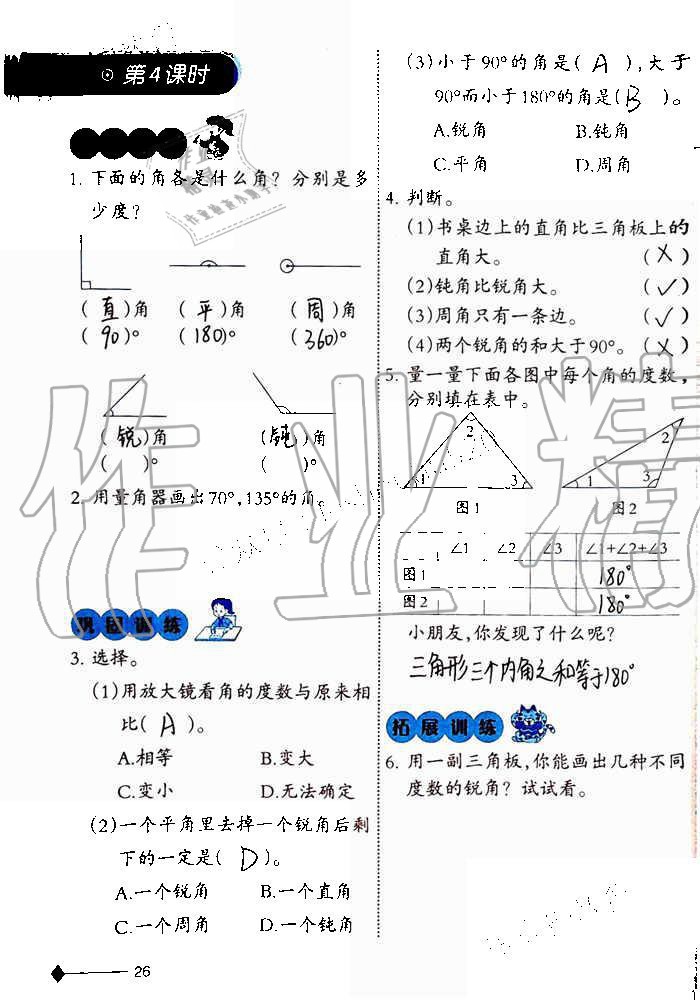 第4课时
1. 下面的角各是什么角？分别是多
少度？
(直)角 (平)角 (周)角
(90)° (180)° (360)°
(锐)角 (钝)角
( )° ( )°
2. 用量角器画出70°,135°的角。
巩固训练
3. 选择。
(1)用放大镜看角的度数与原来相
比( A )。
A.相等 B.变大
C.变小 D.无法确定
(2)一个平角里去掉一个锐角后剩
下的一定是( D )。
A.一个锐角 B.一个直角
C.一个周角 D.一个钝角
26
(3)小于90°的角是( A ),大于
90°而小于180°的角是( B )。
A.锐角 B.钝角
C.平角 D.周角
4. 判断。
(1)书桌边上的直角比三角板上的
直角大。 (×)
(2)钝角比锐角大。 (✓)
(3)周角只有一条边。 (✓)
(4)两个锐角的和大于90°。 (×)
5. 量一量下面各图中每个角的度数,
分别填在表中。
2 2
1 3 1 3
图1 图2
∠1 ∠2 ∠3 ∠1+∠2+∠3
图1 180°
图2 180°
小朋友,你发现了什么呢？
三角形三个内角之和等于180°
拓展训练
6. 用一副三角板,你能画出几种不同
度数的锐角？试试看。
作业精